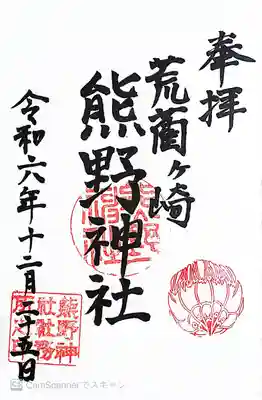 奉拝
荒藺ヶ崎
熊野神社
令和六年十二月二十五日
CamScannerでスキャン